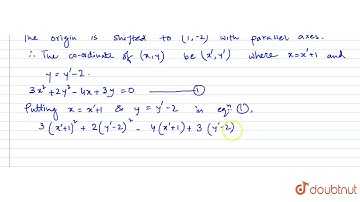 The origin is shifted to (1,-2) with parallel axes.
∴ The co-ordinate of (x,y) be (x',y') where x=x'+1 and
y = y'-2.
3x²+2y²-4x+3y=0 ——— ①
Putting x = x'+1 & y = y'-2 in eqⁿ ①,
3(x'+1)² + 2(y'-2)² - 4(x'+1) + 3(y'-2)
doubtnut